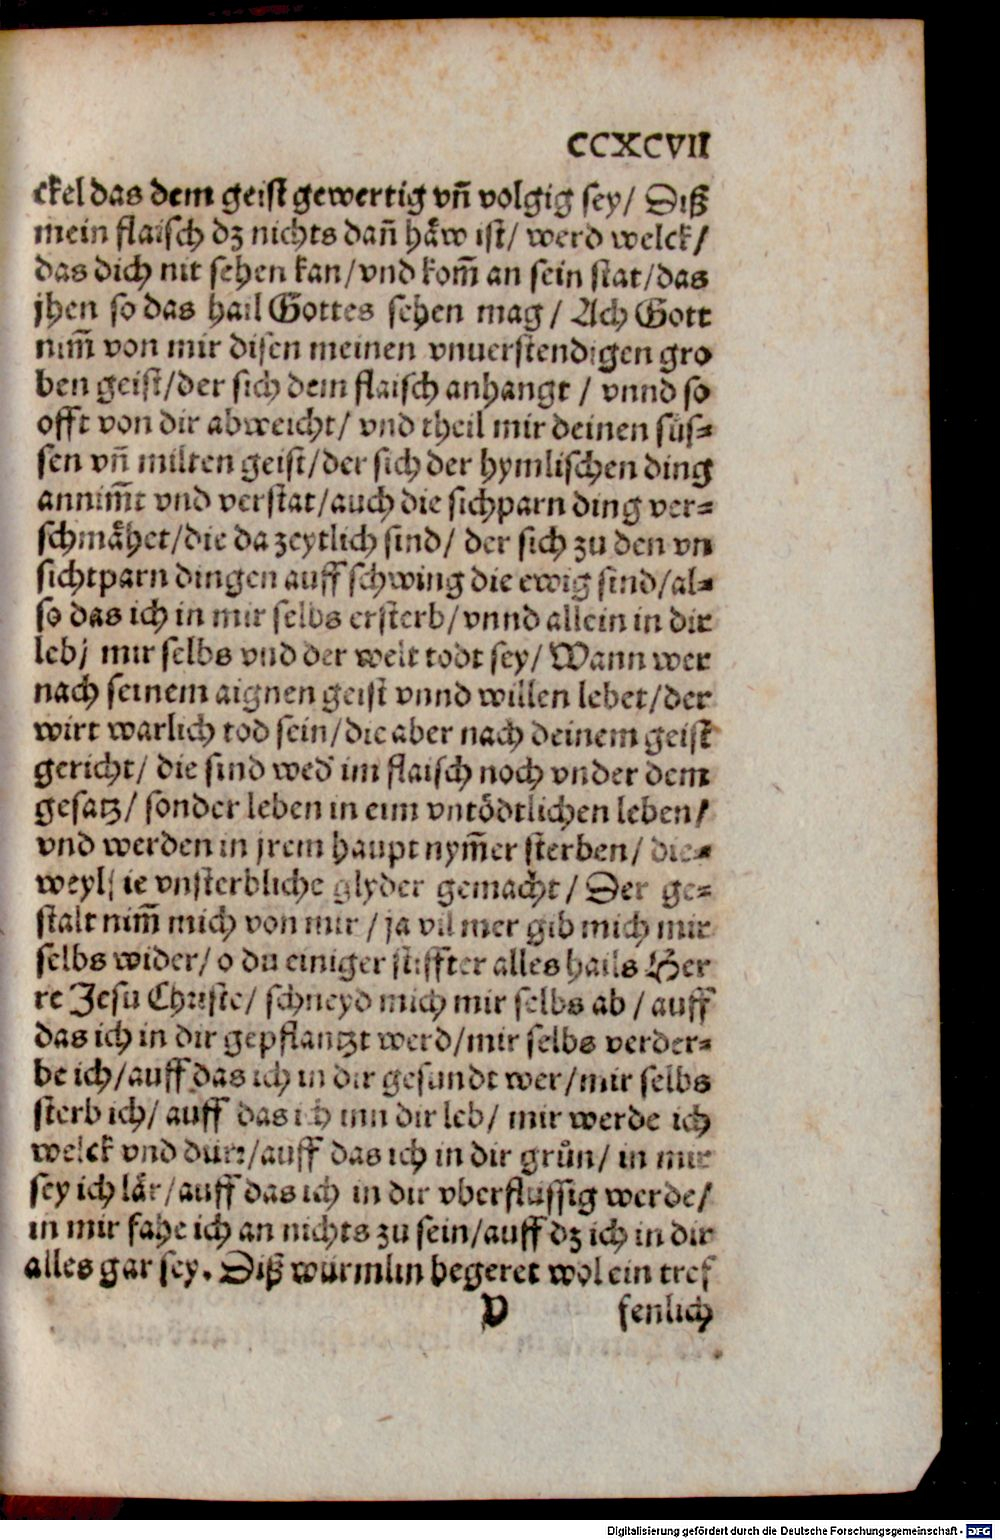 CCXCVII
ckel das dem geist gewertig vn̄ volgig sey/ Diß
mein flaisch dz nichts dan̄ hāͤw ist/ werd welck/
das dich nit sehen kan/vnd kom̄ an sein stat/das
jhen so das hail Gottes sehen mag/ Ach Gott
nim̄ von mir disen meinen vnuerstendigen gro
ben geist/der sich dem flaisch anhangt / vnnd so
offt von dir abweicht/ vnd theil mir deinen süs⸗
sen vn̄ milten geist/der sich der hymlischen ding
annim̄t vnd verstat/auch die sichparn ding ver⸗
schmaͤhet/die da zeytlich sind/ der sich zu den vn
sichtparn dingen auff schwing die ewig sind/al⸗
so das ich in mir selbs ersterb/vnnd allein in dir
leb/ mir selbs vnd der welt todt sey/ Wann wer
nach seinem aignen geist vnnd willen lebet/der
wirt warlich tod sein/die aber nach deinem geist
gericht/ die sind wed' im flaisch noch vnder dem
gesatz/ sonder leben in eim vntödtlichen leben/
vnd werden in jrem haupt nym̄er sterben/ die⸗
weyl sie vnsterbliche glyder gemacht/ Der ge⸗
stalt nim̄ mich von mir / ja vil mer gib mich mir
selbs wider/ o du einiger stiffter alles hails Her
re Jesu Christe/ schneyd mich mir selbs ab / auff
das ich in dir gepflantzt werd/mir selbs verder⸗
be ich/auff das ich in dir gesundt wer/mir selbs
sterb ich/ auff das ich inn dir leb/ mir werde ich
welck vnd dürr/auff das ich in dir grün/ in mir
sey ich lär/auff das ich in dir vberflüssig werde/
in mir fahe ich an nichts zu sein/auff dz ich in dir
alles gar sey. Diß würmlin begeret wol ein tref
V fenlich
Digitalisierung gefördert durch die Deutsche Forschungsgemeinschaft - DFG